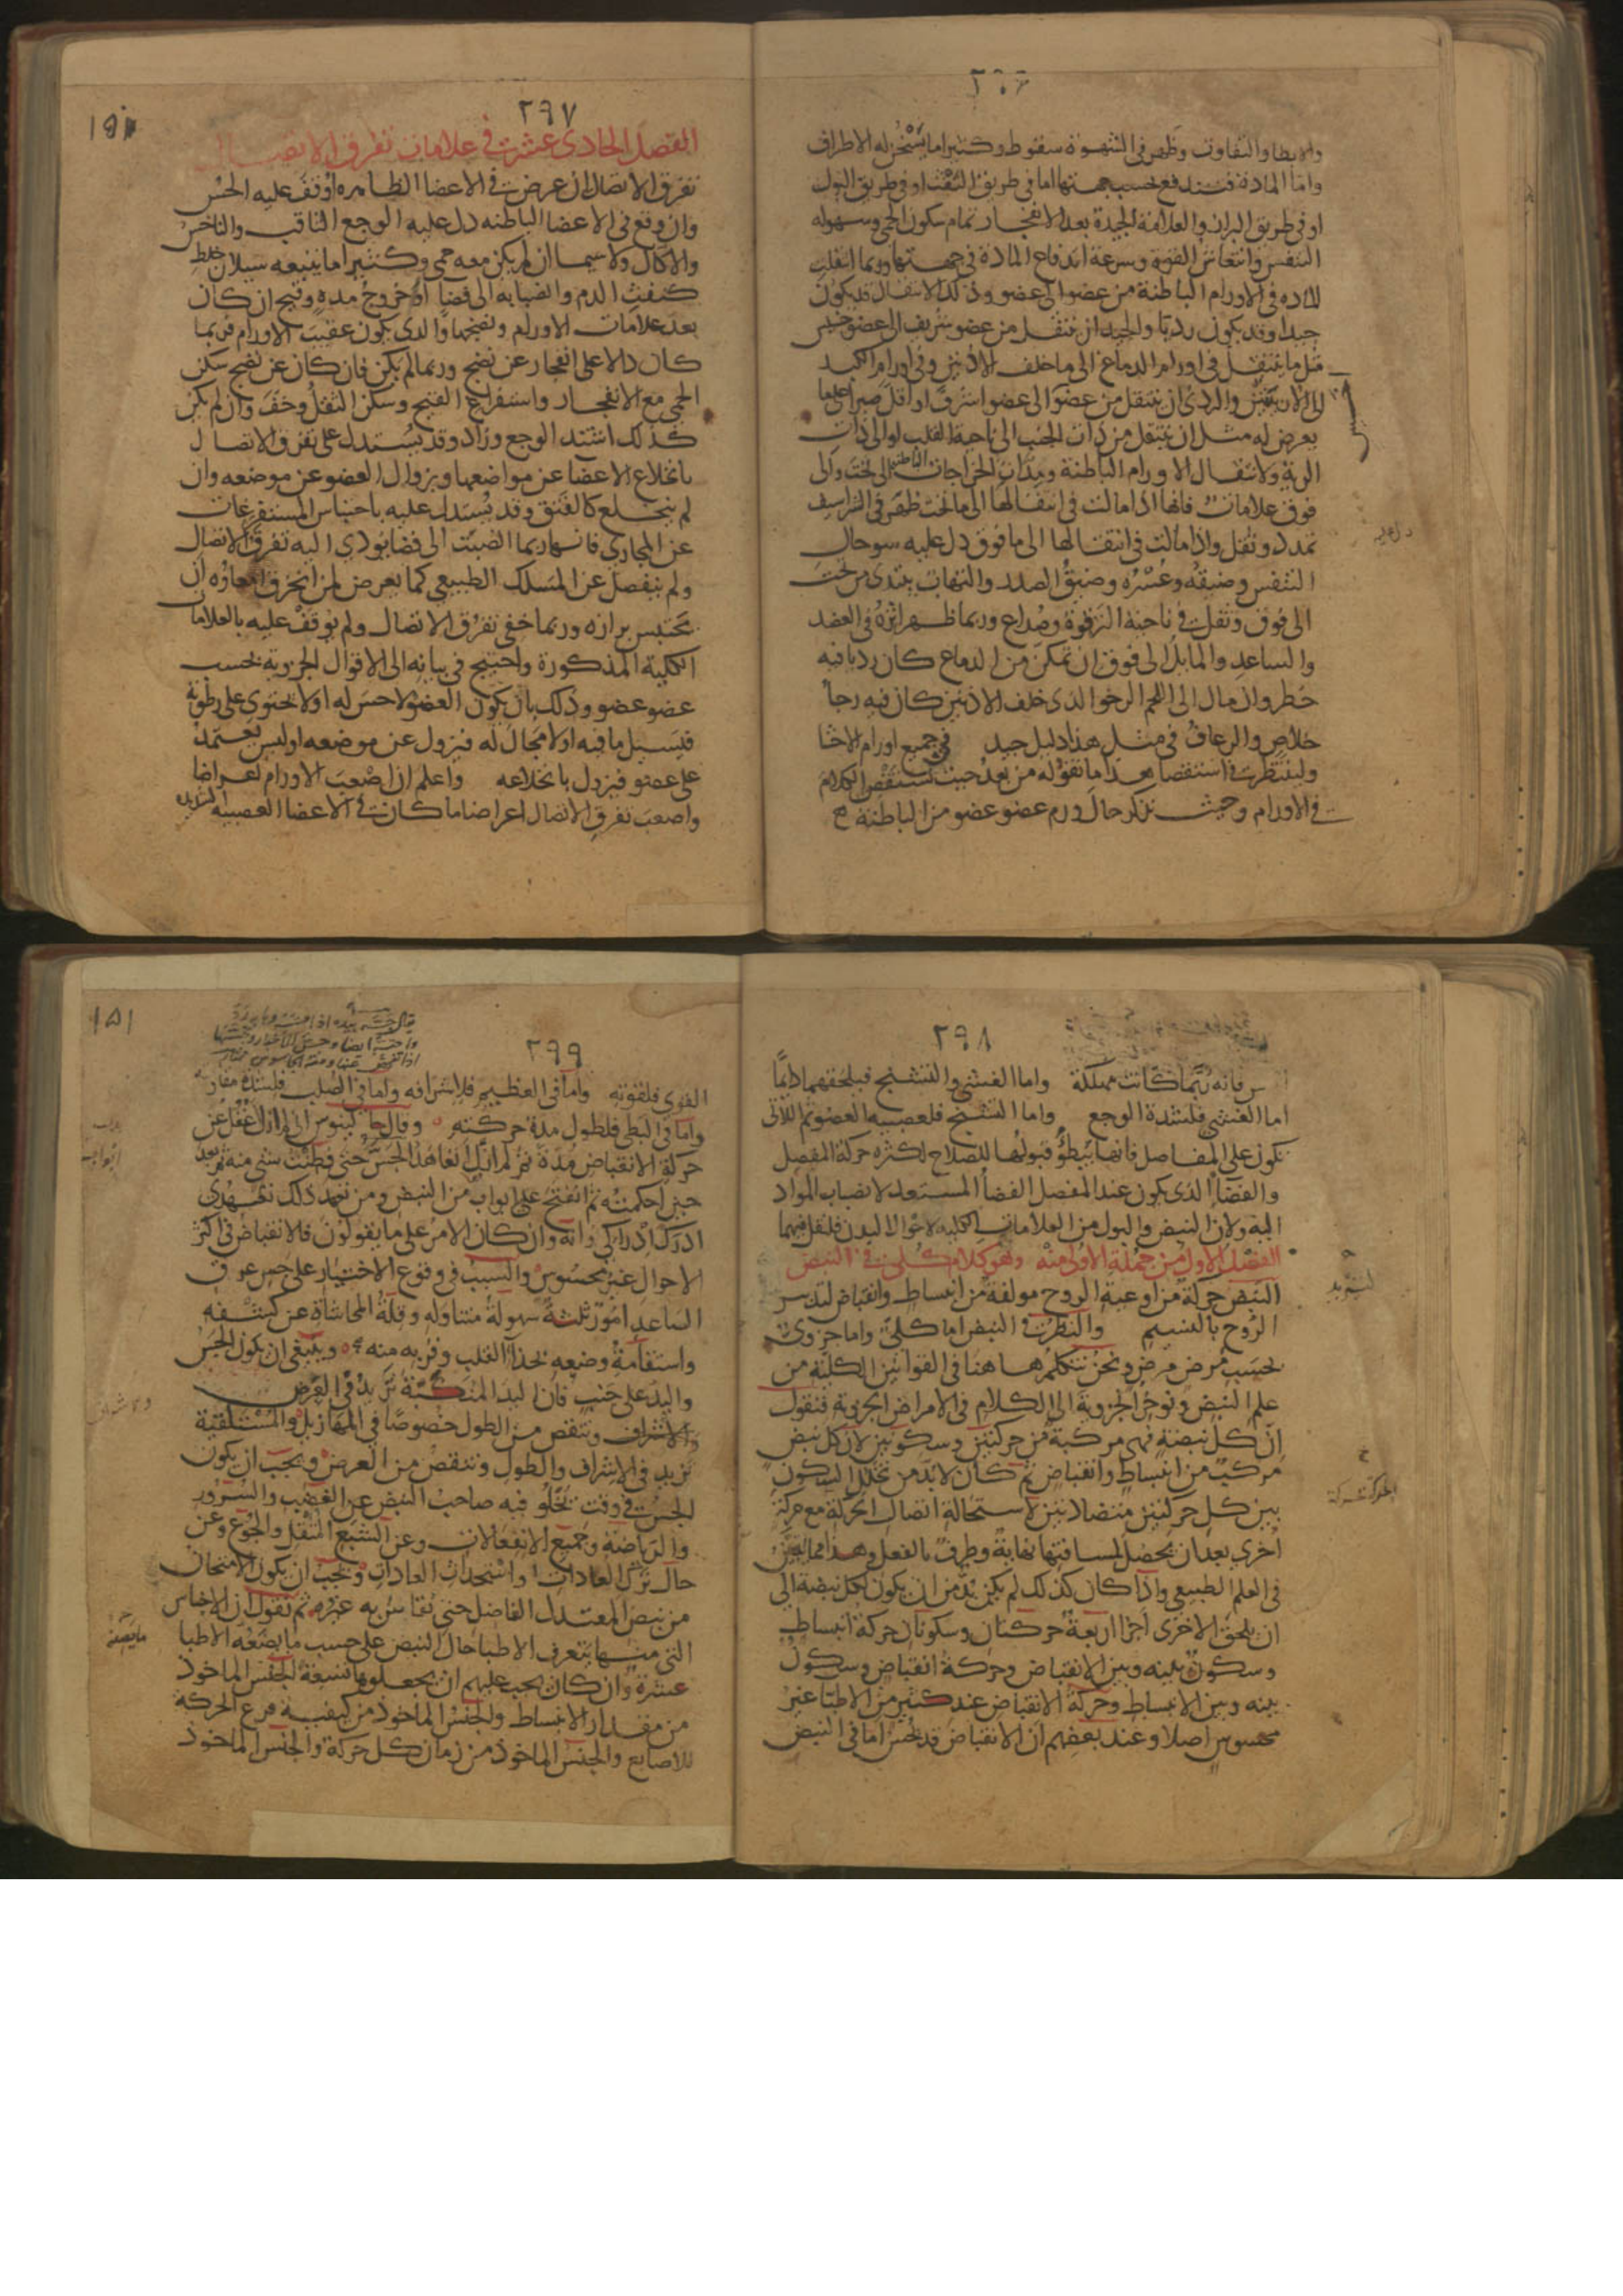 ٢٩٦
والابطا والتفاوت وظهر فى الشهوة سقوط وكثيرا ما يسخن له الاطراف
واما المادة فتندفع بحسب جهتها اما فى طريق النفث او فى طريق البول
او فى طريق البراز والعلامة الجيدة بعد الانفجار تمام سكون الحمى وسهوله
التنفس وانتعاش القوة وسرعة اندفاع المادة فى جهتها وربما انتقلت
الماده فى الاورام الباطنة من عضو الى عضو وذلك الانتقال قد يكون
جيدا وقد يكون رديا والجيد ان ينتقل من عضو شريف الى عضو خسيس
مثل ما ينتقل فى اورام الدماغ الى ما خلف الاذنين وفى اورام الكبد
الى الاربيتين والردى ان ينتقل من عضو الى عضو اشرف او اقل صبرا على ما
يعرض له مثل ان ينتقل من ذات الجنب الى ناحية القلب او الى ذات
الرية ولانتقال الاورام الباطنة وميلان الخراجات الباطنة الى تحت والى
فوق علامات فانها اذا مالت فى انتقالها الى ما تحت ظهر فى الشراسيف
تمدد وثقل واذا مالت فى انتقالها الى ما فوق دل عليه سو حال
التنفس وضيقه وعسره وضيق الصدر والتهاب يبتدى من تحت
الى فوق وثقل فى ناحية الترقوة وصداع وربما ظهر اثره فى العضد
والساعد والمايل الى فوق ان تمكن من الدماغ كان رديا فيه
خطر وان مال الى اللحم الرخو الذى خلف الاذنين كان فيه رجا
خلاص والرعاف فى مثل هذا دليل جيد وفى جميع اورام الاحشا
ولينتظر فى استقصا هذا ما نقوله من بعد حيث نستقصى الكلام
فى الاورام وحيث نذكر حال ورم عضو عضو من الباطنة
٢٩٧
الفصل الحادى عشر فى علامات تفرق الاتصال
تفرق الاتصال ان عرض فى الاعضا الظاهره اوقف عليه الحس
وان وقع فى الاعضا الباطنه دل عليه الوجع الثاقب والناخس
والاكال ولا سيما ان لم يكن معه حمى وكثيرا ما يتبعه سيلان خلط
كنفث الدم وانصبابه الى فضا او خروج مده وقيح ان كان
بعد علامات الاورام ونضجها والذى يكون عقيب الاورام فربما
كان دالا على انفجار عن نضج وربما لم يكن فان كان عن نضج سكن
الحمى مع الانفجار واستفراغ القيح وسكن الثقل وخف وان لم يكن
كذلك اشتد الوجع وزاد وقد يستدل على تفرق الاتصال
بانخلاع الاعضا عن مواضعها وبزوال العضو عن موضعه وان
لم ينخلع كالفتق وقد يستدل عليه باحتباس المستفرغات
عن المجارى فانها ربما انصبت الى فضا يودى اليه تفرق الاتصال
ولم ينفصل عن المسلك الطبيعى كما يعرض لمن انخرق امعاؤه ان
يحتبس برازه وربما خفى تفرق الاتصال ولم يوقف عليه بالعلامات
الكلية المذكورة واحتيج فى بيانه الى الاقوال الجزوية بحسب
عضو عضو وذلك بان يكون العضو لا حس له او لا يحتوى على رطوبة
فيسيل ما فيه او لا مجال له فيزول عن موضعه او ليس يعتمد
على عضو فيزول بانخلاعه واعلم ان اصعب الاورام اعراضا
واصعب تفرق الاتصال اعراضا ما كان فى الاعضا العصبيه الشديده
٢٩٨
الحس فانه ربما كانت مهلكة واما الغشى والتشنج فيلحقهما دايما
اما الغشى فلشدة الوجع واما التشنج فلعصبيه العضو ثم اللاتى
تكون على المفاصل فانها يبطؤ قبولها للصلاح لكثره حركة المفصل
والفضا الذى يكون عند المفصل الفضا المستعد لانصباب المواد
اليه ولان النبض والبول من العلامات الكلية لاحوال البدن فلنقل فيهما
الفصل الاول من جملة الاولى منه وهو كلام كلى فى النبض
النبض حركة من اوعية الروح مولفة من انبساط وانقباض لتدبير
الروح بالنسيم والنظر فى النبض اما كلى واما جزوى
بحسب مرض مرض ونحن نتكلم هاهنا فى القوانين الكلية من
علم النبض ونوخر الجزوية الى الكلام فى الامراض الجزوية فنقول
ان كل نبضة فهى مركبة من حركتين وسكونين لان كل نبض
مركب من انبساط وانقباض ثم كان لا بد من تخلل السكون
بين كل حركتين متضادتين لاستحالة اتصال الحركة مع حركة
اخرى بعد ان يحصل لمسافتها نهاية وطرف بالفعل وهذا مما يتبين
فى العلم الطبيعى واذا كان كذلك لم يكن بد من ان يكون لكل نبضة الى
ان يلحق الاخرى اجزا اربعة حركتان وسكونان حركة انبساط
وسكون بينه وبين الانقباض وحركة انقباض وسكون
بينه وبين الانبساط وحركة الانقباض عند كثير من الاطبا غير
محسوس اصلا وعند بعضهم ان الانقباض قد يحس اما فى النبض
٢٩٩
القوى فلقوته واما فى العظيم فلاشرافه واما فى الصلب فلشدة مقاومته
واما فى البطى فلطول مدة حركته وقال جالينوس انى لم ازل اغفل عن
حركة الانقباض مدة ثم لم ازل اتعاهد الجس حتى فطنت بشى منه ثم بعد
حين احكمته ثم انفتح على ابواب من النبض ومن تعهد ذلك تعهدى
ادرك ادراكى وانه وان كان الامر على ما يقولون فالانقباض فى اكثر
الاحوال غير محسوس والسبب فى وقوع الاختيار على جس عرق
الساعد امور ثلثة سهولة متناوله وقلة المحاشاة عن كشفه
واستقامة وضعه بحذا القلب وقربه منه وينبغى ان يكون الجس
واليد على جنب فان اليد المتكبة تزيد فى العرض
والاشراف وتنقص من الطول خصوصا فى المهازيل والمستلقية
تزيد فى الاشراف والطول وتنقص من العرض ويجب ان يكون
الجس فى وقت تخلو فيه صاحب النبض عن الغضب والسرور
والرياضة وجميع الانفعالات وعن الشبع المثقل والجوع وعن
حال ترك العادات واستحداث العادات ويجب ان يكون الامتحان
من نبض المعتدل الفاضل حتى يقاس به غيره ثم نقول ان الاجناس
التى منها يتعرف الاطبا حال النبض على حسب ما يضعه الاطبا
عشرة وان كان يجب عليهم ان يجعلوها تسعة الجنس الماخوذ
من مقدار الانبساط والجنس الماخوذ من كيفية قرع الحركة
للاصابع والجنس الماخوذ من زمان كل حركة والجنس الماخوذ
١٥١